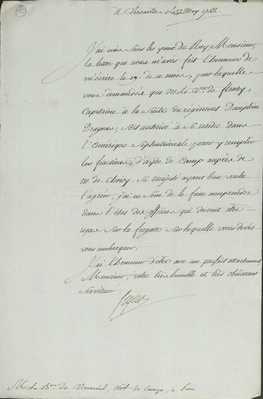 A Versailles le May 1782
J'ai mis sous les yeux du Roy, Monsieur,
la lettre que vous m'avez fait l'honneur de
m'écrire le 19 de ce mois, par laquelle
vous que M. le de fleury
Capitaine à la suite du régiment Dauphin
Dragons, soit autorisé à se rendre dans
l'Amérique Septentrionale pour y remplir
les fonctions d'ayde de Camp auprès de
M. de Choisy. Sa Majesté ayant bien voulu
l'agréer, j'ai
dans l'état des officiers qui doivent être
sur la fregate sur laquelle vous devés
vous embarquer.
J'ai l'honneur d'être avec un parfait attachement,
Monsieur, votre très humble et très obéissant
serviteur
Segur
M. le de Viomenil, de Camp, à